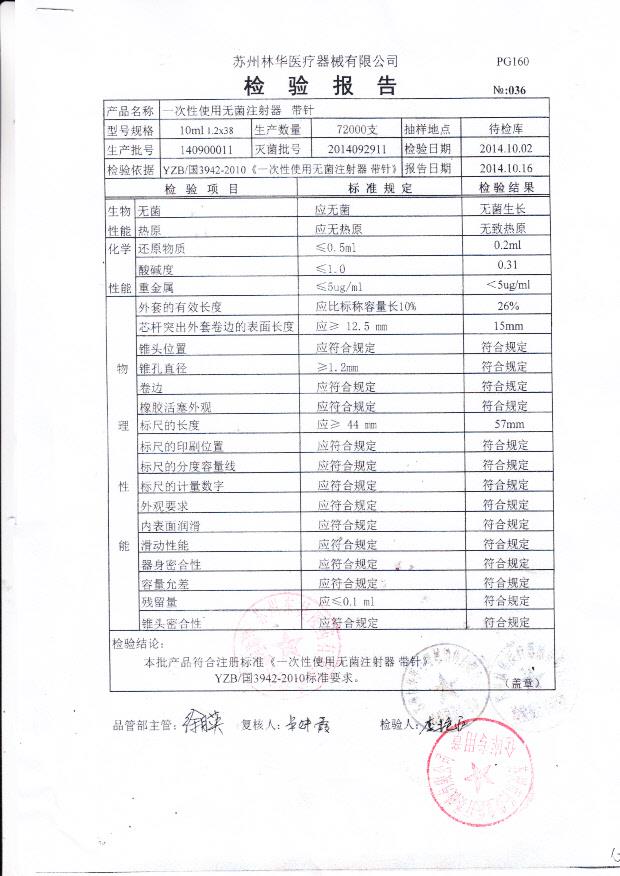 苏州林华医疗器械有限公司 PG160
检验报告 №:036
产品名称 一次性使用无菌注射器 带针
型号规格 10ml 1.2x38 生产数量 72000支 抽样地点 待检库
生产批号 140900011 灭菌批号 2014092911 检验日期 2014.10.02
检验依据 YZB/国3942-2010《一次性使用无菌注射器 带针》 报告日期 2014.10.16
检验项目 标准规定 检验结果
生物 无菌 应无菌 无菌生长
性能 热原 应无热原 无致热原
化学 还原物质 ≤0.5ml 0.2ml
酸碱度 ≤1.0 0.31
性能 重金属 ≤5ug/ml <5ug/ml
外套的有效长度 应比标称容量长10% 26%
芯杆突出外套卷边的表面长度 应≥ 12.5 mm 15mm
锥头位置 应符合规定 符合规定
物 锥孔直径 ≥1.2mm 符合规定
卷边 应符合规定 符合规定
橡胶活塞外观 应符合规定 符合规定
理 标尺的长度 应≥ 44 mm 57mm
标尺的印刷位置 应符合规定 符合规定
标尺的分度容量线 应符合规定 符合规定
性 标尺的计量数字 应符合规定 符合规定
外观要求 应符合规定 符合规定
内表面润滑 应符合规定 符合规定
能 滑动性能 应符合规定 符合规定
器身密合性 应符合规定 符合规定
容量允差 应符合规定 符合规定
残留量 应≤0.1 ml 符合规定
锥头密合性 应符合规定 符合规定
检验结论:
本批产品符合注册标准《一次性使用无菌注射器 带针》
YZB/国3942-2010标准要求。
(盖章)
品管部主管: 复核人: 检验人:
仓库专用章